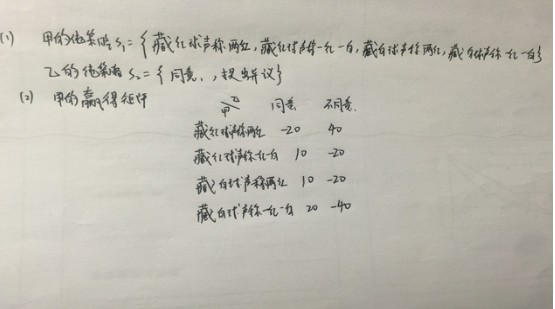 (1) 甲的纯策略S₁={藏红球声称两红,藏红球声称一红一白,藏白球声称两红,藏白球声称一红一白}
乙的纯策略S₂={同意,,提出异议}
(2) 甲的赢得矩阵
甲 乙 同意 不同意.
藏红球声称两红 -20 40
藏红球声称一红一白 10 -20
藏白球声称两红 10 -20
藏白球声称一红一白 20 -40